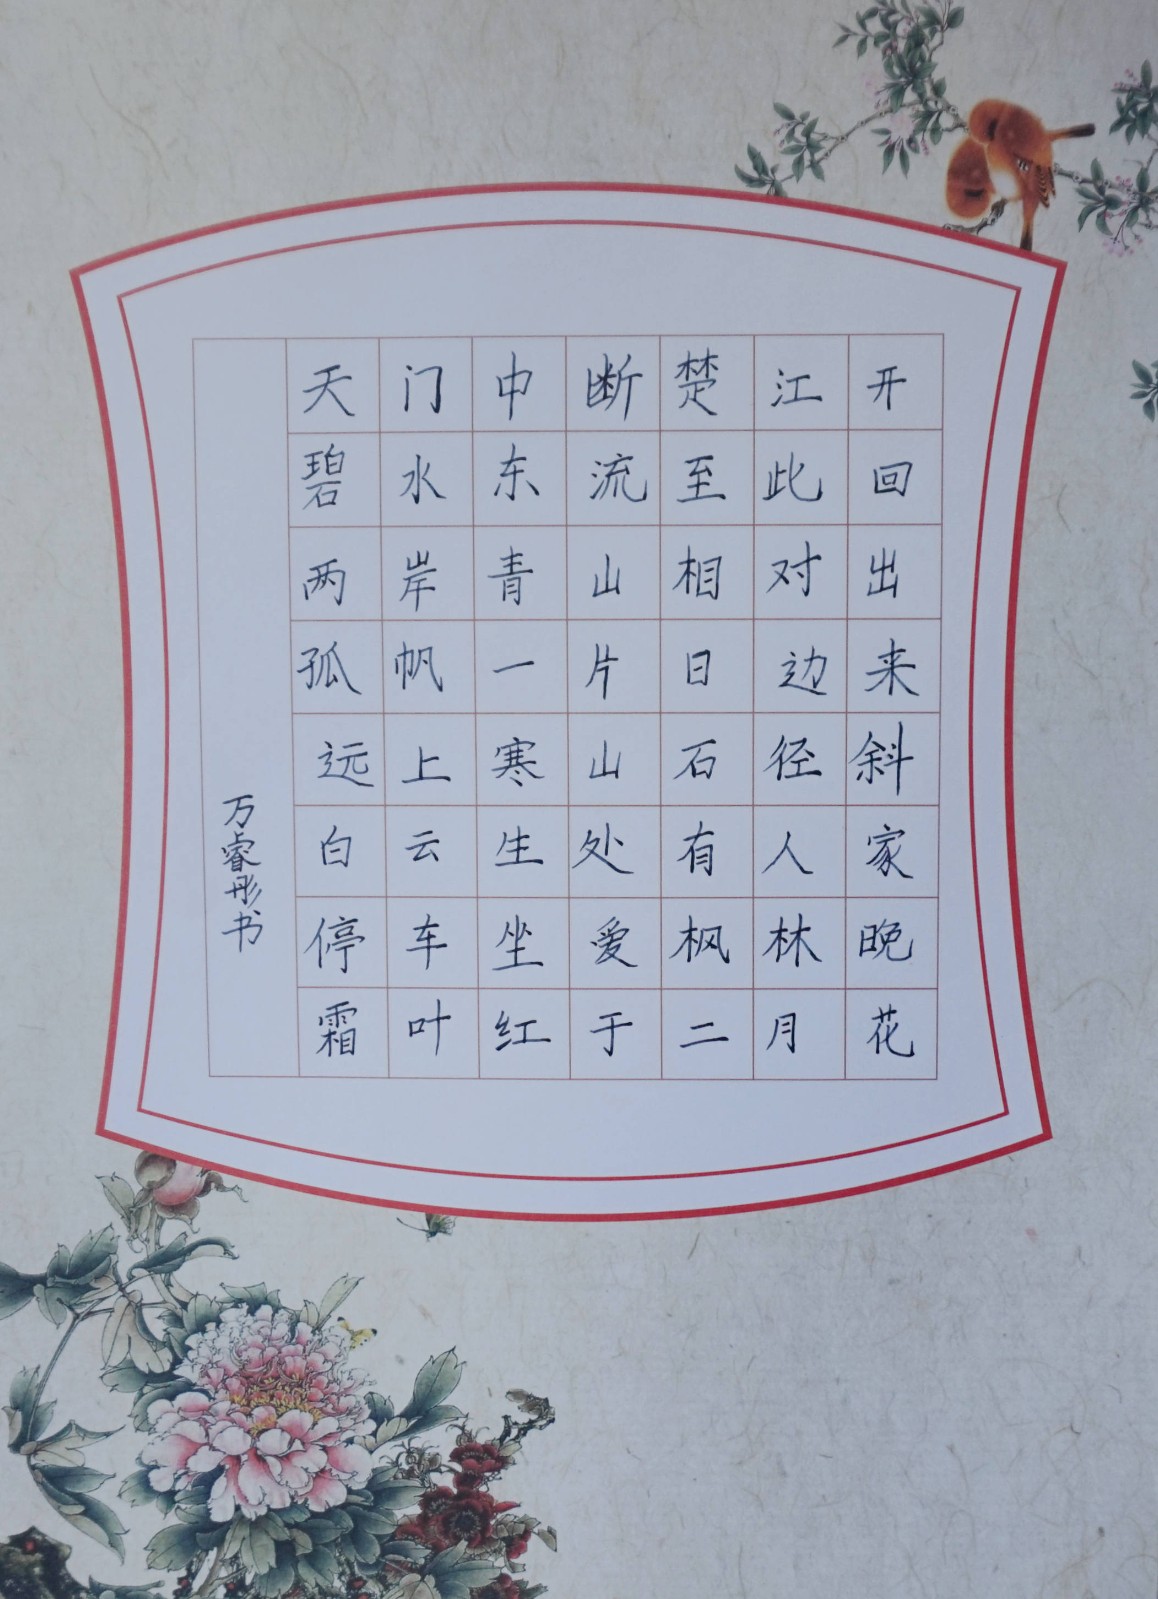 天门中断楚江开
碧水东流至此回
两岸青山相对出
孤帆一片日边来
远上寒山石径斜
白云生处有人家
停车坐爱枫林晚
霜叶红于二月花
万睿彤书